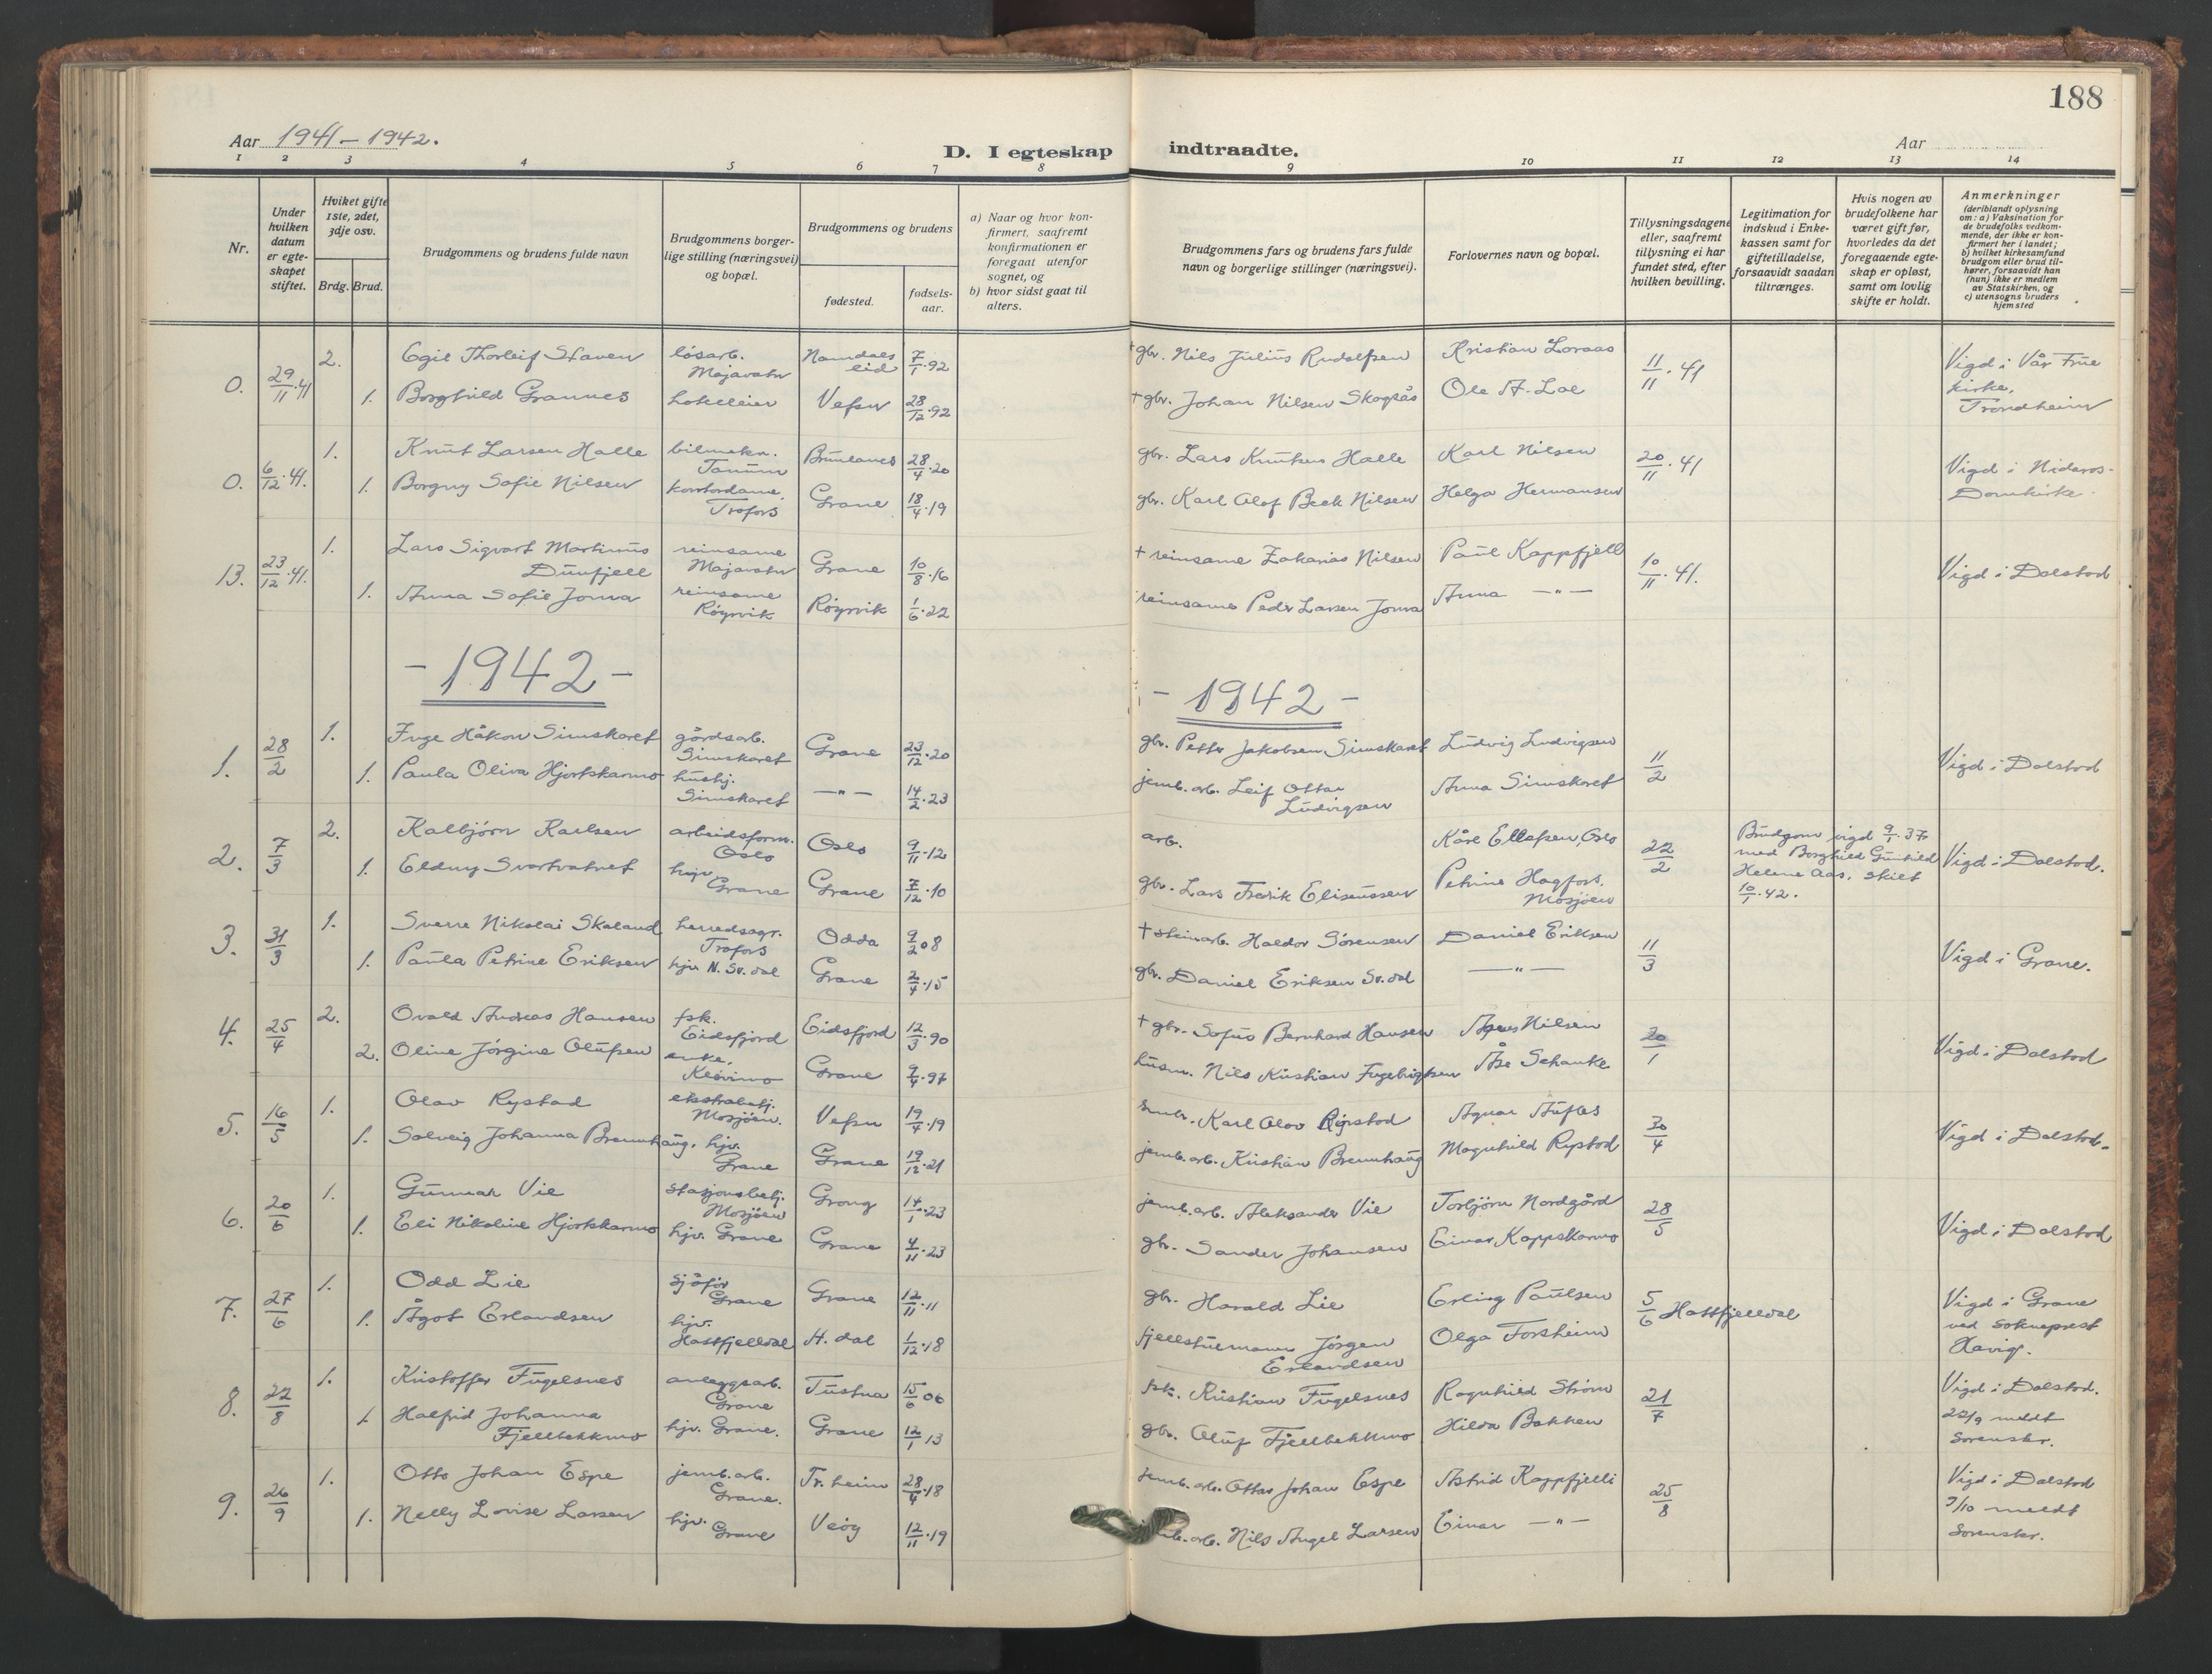 188
Aar 1941 – 1942.
D. I egteskap indtraadte.
Aar
1 2 3 4 5 6 7 8 9 10 11 12 13 14
Nr.
Under hvilken datum er egte-skapet stiftet.
Hviket gifte 1ste, 2det, 3dje osv.
Brdg. Brud.
Brudgommens og brudens fulde navn
Brudgommens borger-lige stilling (næringsvei) og bopæl.
Brudgommens og brudens
fødested.
fødsels-aar.
a) Naar og hvor kon-firmert, saafremt konfirmationen er foregaat utenfor sognet, og
b) hvor sidst gaat til alters.
Brudgommens fars og brudens fars fulde navn og borgerlige stillinger (næringsvei).
Forlovernes navn og bopæl.
Tillysningsdagene eller, saafremt tillysning ei har fundet sted, efter hvilken bevilling.
Legitimation for indskud i Enke-kassen samt for giftetilladelse, forsaavidt saadan tiltrænges.
Hvis nogen av brudefolkene har været gift før, hvorledes da det foregaaende egte-skap er opløst, samt om lovlig skifte er holdt.
Anmerkninger
(deriblandt oplysning om: a) Vaksination for de brudefolks vedkom-mende, der ikke er kon-firmert her i landet; b) hvilket kirkesamfund brudgom eller brud til-hører, forsaavidt han (hun) ikke er medlem av Statskirken, og c) utensogns bruders hjemsted
0. 29/11·41 2. Egil Thorleif Staven løsarb. Majavatn Namdalseid 7/1·92 + gbr. Nils Julius Rudolfsen Kristian Loraas 11/11·41 Vigd i Vår Frue kirke, Trondheim
1. Borghild Grannes hotelleier Vefsn 28/12·92 + gbr. Johan Nilsen Skogsås Ole A. Loe
0. 6/12·41. 1. Knut Larsen Halle bilmekn. Tanum Brunlanes 28/4·20 gbr. Lars Knutsen Halle Karl Nilsen 20/11·41 Vigd i Nidaros-Domkirke.
1. Borgny Sofie Nilsen kontordame, Trofors Grane 18/4·19 gbr. Karl Olof Beck Nilsen Helga Hermansen
13. 23/12·41. 1. Lars Sigvart Martinus Dunfjell reinsame Majavatn Grane 10/8·16 + reinsame Zakarias Nilsen Paul Kappfjell 10/11·41. Vigd i Dolstad
1. Anna Sofie Joma reinsame Røyrvik Røyrvik 1/6·22 reinsame Peder Larsen Joma Anna —"—
– 1942 –
– 1942 –
1. 28/2 1. Inge Håkon Simskaret gårdsarb. Simskaret Grane 23/12·20 gbr. Petter Jakobsen Simskaret Ludvig Ludvigsen 11/2 Vigd i Dolstad
1. Paula Oliva Hjortskarmo hushj. Simskaret —"— 14/2·23 jernb.arb. Leif Ottar Ludvigsen Anna Simskaret
2. 7/3 2. Kalbjørn Karlsen arbeidsform. Oslo Oslo 9/11·12 arb. Kåre Ellefsen, Oslo 22/2 Brudgom vigd 9/1·37 med Borghild Gunhild Helene Aas, skilt 10/1·42. Vigd i Dolstad.
1. Eldny Svartvatnet hjv. Grane Grane 7/12·10 gbr. Lars Fredrik Eliseussen Petrine Hagfors, Mosjøen
3. 31/3 1. Sverre Nikolai Skaland herredsagr. Trofors Odda 9/2 08 + steinarb. Haldor Sørensen Daniel Eriksen 11/3 Vigd i Grane.
1. Paula Petrine Eriksen hjv. N. Sv.dal Grane 2/4·15 gbr. Daniel Eriksen Sv.dal —"—
4. 25/4 2. Ovald Andreas Hansen fsk. Eidsfjord Eidsfjord 12/3·90 + gbr. Sofus Bernhard Hansen Agnes Nilsen 20/1 Vigd i Dolstad
2. Oline Jørgine Olufsen enke, Kløvimo Grane 9/4·97 husm. Nils Kristian Ingebrigtsen Åse Schanke
5. 16/5 1. Olav Rystad ekstrabetj. Mosjøen. Vefsn 19/4·19 Karl Olav Rystad Agnar Aufles 30/4 Vigd i Dolstad.
1. Solveig Johanna Brennhaug, hjv. Grane Grane 19/12·21 jernb.arb. Kristian Brennhaug Magnhild Rystad
6. 20/6 1. Gunnar Vie stasjonsbetj. Mosjøen Grong 14/1·23 jernb.arb. Aleksander Vie Torbjørn Nordgård 28/5 Vigd i Dolstad
1. Eli Nikoline Hjortskarmo hjv. Grane Grane 4/11·23 gbr. Sander Johansen Einar Kappskarmo
7. 27/6 1. Odd Lie sjåfør Grane Grane 12/11·11 gbr. Harald Lie Erling Paulsen 5/6 Hattfjelldal Vigd i Grane ved sokneprest Havig.
1. Ågot Erlandsen hjv. Hattfjelldal H.dal 1/12·18 fjellstuemann Jørgen Erlandsen Olga Forsheim
8. 22/8 1. Kristoffer Fugelsnes anleggsarb. Grane Tustna 15/6 06 fsk. Kristian Fugelsnes Ragnhild Strøm 21/7 Vigd i Dolstad. 22/9 meldt Sorenskr.
1. Halfrid Johanna Fjellbekkmo hjv. Grane. Grane 12/1 13 gbr. Oluf Fjellbekkmo Hilda Bakken
9. 26/9 1. Otto Johan Espe jernb.arb. Grane. Tr.heim 28/4·18 jernb.arb. Ottar Johan Espe Astrid Kappfjell 25/8 Vigd i Dolstad 7/10 meldt Sorenskr.
1. Nelly Lovise Larsen hjv. Grane Veøy 12/11·19 jernb.arb. Nils Angel Larsen Einar —"—